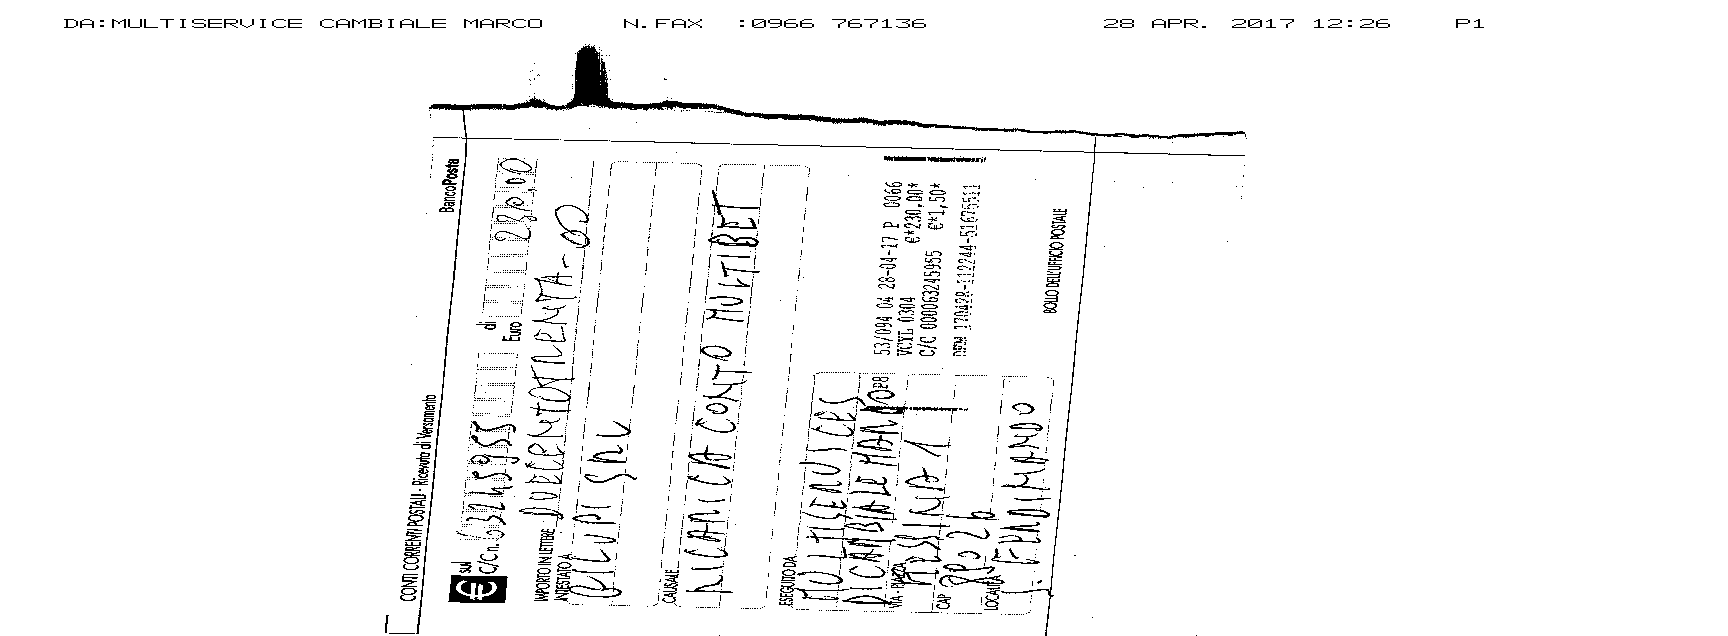 DA:MULTISERVICE CAMBIALE MARCO N.FAX :0966 767136 28 APR. 2017 12:26 P1
CONTI CORRENTI POSTALI - Ricevuta di Versamento BancoPosta
€ sul C/C n. 63245955 di Euro 230,00
IMPORTO IN LETTERE DUECENTOTRENTA-00
INTESTATO A
SRL
CAUSALE
RICARICA CONTO MULTIBET
ESEGUITO DA
MULTISERVICES
DI CAMBIALE MARCO
VIA - PIAZZA MESSINA 1
CAP 89026
LOCALITÀ S. FERDINANDO
53/094 04 28-04-17 P 0066
VCYL 0304 €*230,00*
C/C 000063245955 €*1,50*
BOLLO DELL'UFFICIO POSTALE